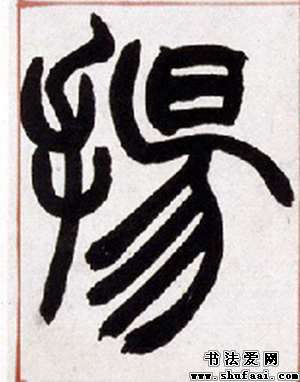 揚
书法爱网
www.shufaai.com